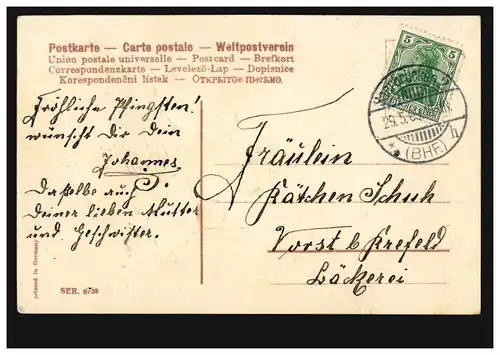 Postkarte — Carte postale — Weltpostverein
Union postale universelle — Postcard — Brefkort
Correspondenzkarte — Levelező-Lap — Dopisnice
Korespondenční lístek — Открытое письмо.
Fröhliche Pfingsten!
wünscht dir dein
Johannes
Daßelbe auch
deiner lieben Mutter
und Geschwister.
Fräulein
Kätchen Schuh
Vorst b Krefeld
Bäckerei
5 5
29.5.
(BHF.)
printed in Germany
SER.